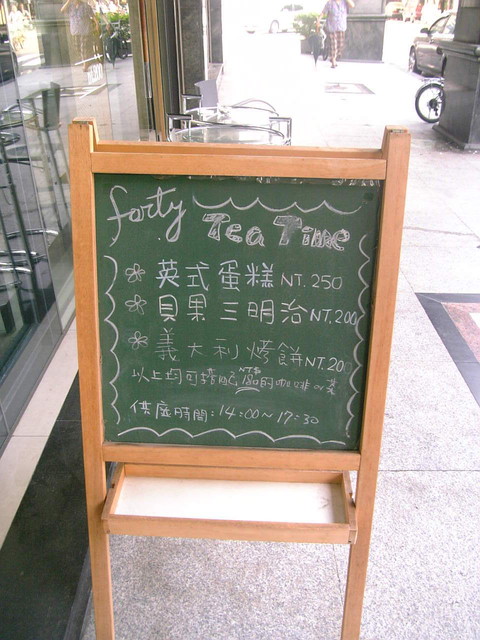 forty Tea Time
英式蛋糕 NT.250
貝果三明治 NT.200
義大利烤餅 NT.20
以上均可搭配 NT$ 180的咖啡 茶
供應時間：14:00~17:30